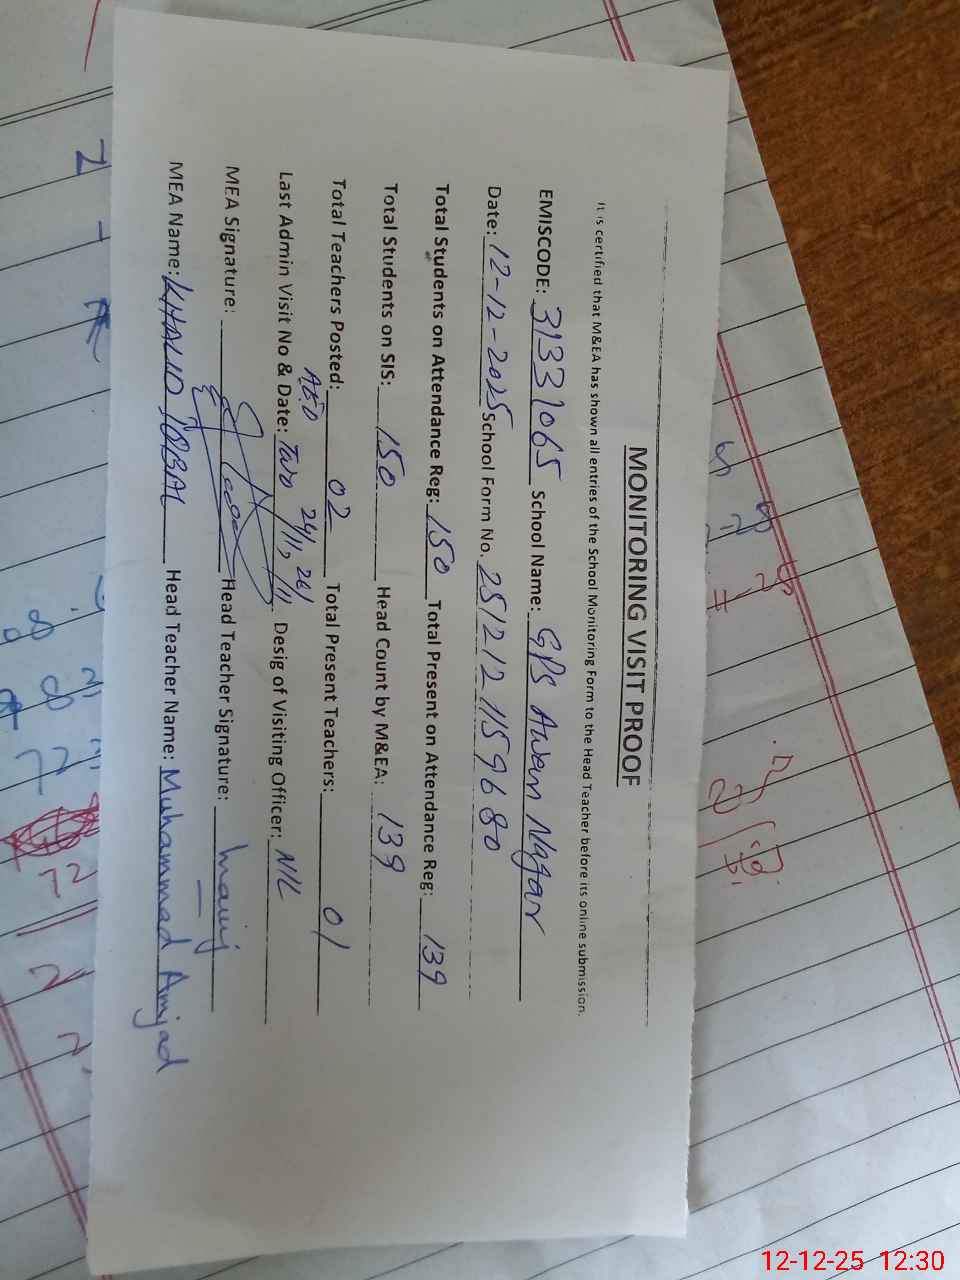 MONITORING VISIT PROOF
It is certified that M&EA has shown all entries of the School Monitoring Form to the Head Teacher before its online submission.
EMISCODE: 31331065 School Name: GPS Awan Nagar
Date: 12-12-2025 School Form No. 2512121159680
Total Students on Attendance Reg: 150 Total Present on Attendance Reg: 139
Total Students on SIS: 150 Head Count by M&EA: 139
Total Teachers Posted: 02 Total Present Teachers: 01
Last Admin Visit No & Date: Two 24/11, 26/11 Desig of Visiting Officer: NIL
AEO
MEA Signature: Head Teacher Signature:
MEA Name: KHALID IQBAL Head Teacher Name: Muhammad Amjad
12-12-25 12:30